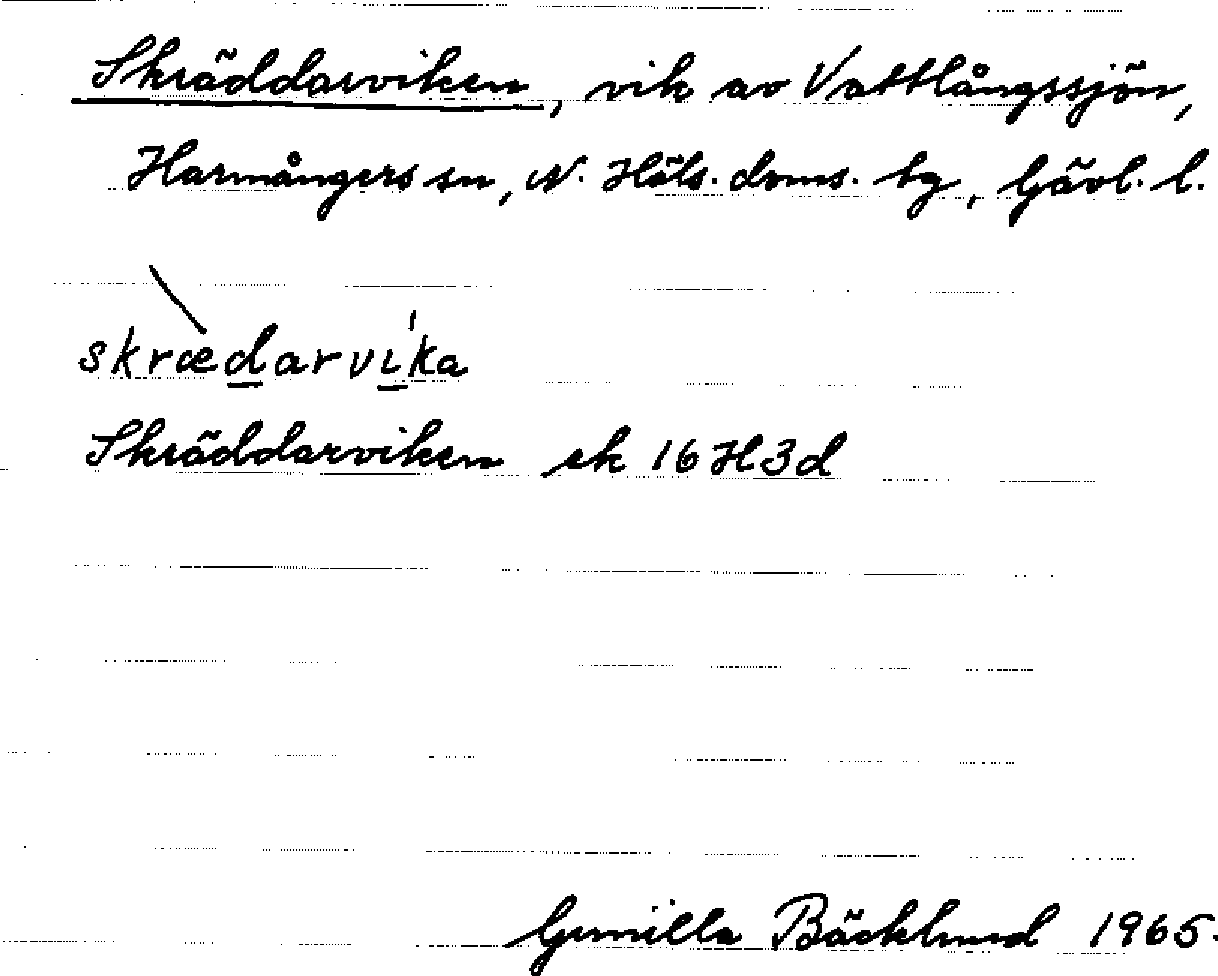 Skräddarviken, vik av Vattlångssjön,
Harmångers sn, N. Häls. doms. tg, Gävl. l.
skrædarvika
Skräddarviken ek 16H3d
Gunilla Bäcklund 1965.